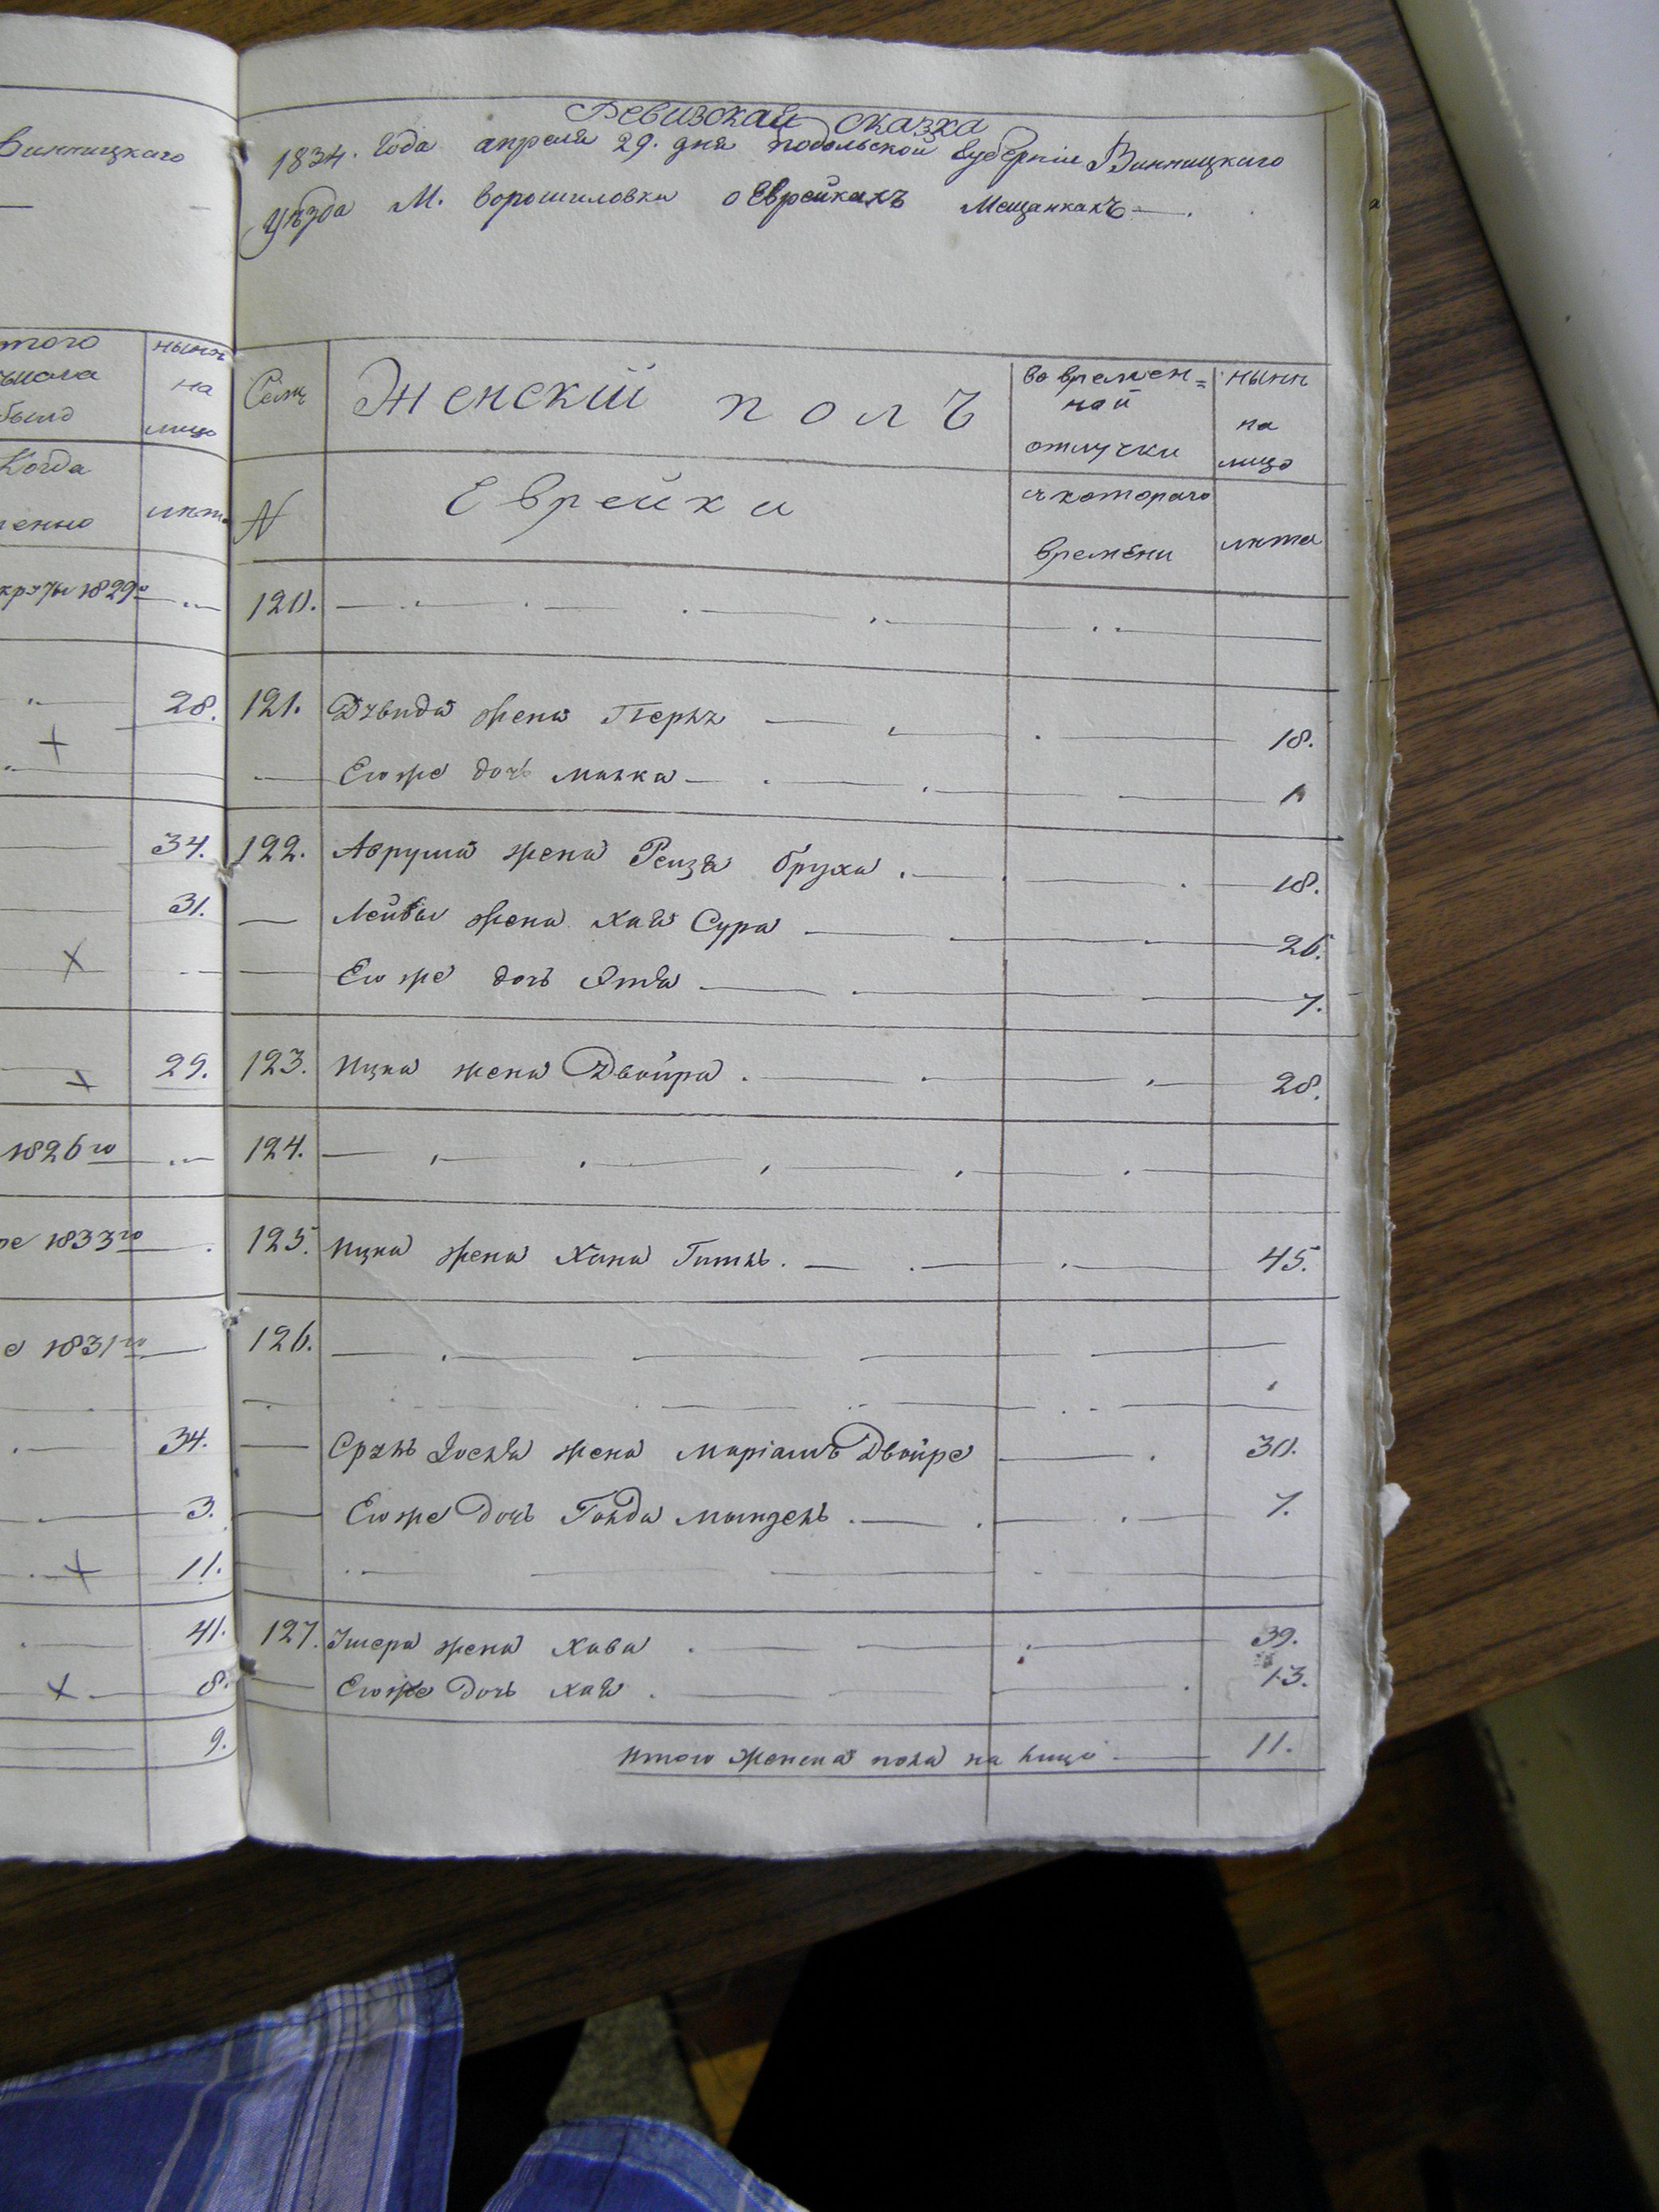 Винницкаго
того
числа
было
ныне
на
лицо
Когда
лета
1829го
28.
34.
31.
29.
1826го
1833го
1831го
34.
3.
11.
41.
8.
9.
Ревизская сказка
1834. Года апреля 29. дня подольской губерніи Винницкаго
уезда М. Ворошиловки о Еврейкахъ Мещанкахъ
Женскій полъ
во времен=
ной
отлучки
ныне
на
лицо
N
Еврейки
съ котораго
времени
лета
120.
121. Давида жена Перль 18.
Его же дочь малка 1
122. Аврума жена Рейзя бруха 18.
Лейбы жена хая Сура 26.
Его же дочьЭтя 7.
123. Ицка жена Двойра 28.
124.
125. Ицка жена Хана Гитль 45.
126.
Сруль Иосия жена маріамъ Двойре 30.
Его же дочь Голда 7.
127. жена хава 39.
Его же дочь хая 13.
итого женска пола на лицо 11.